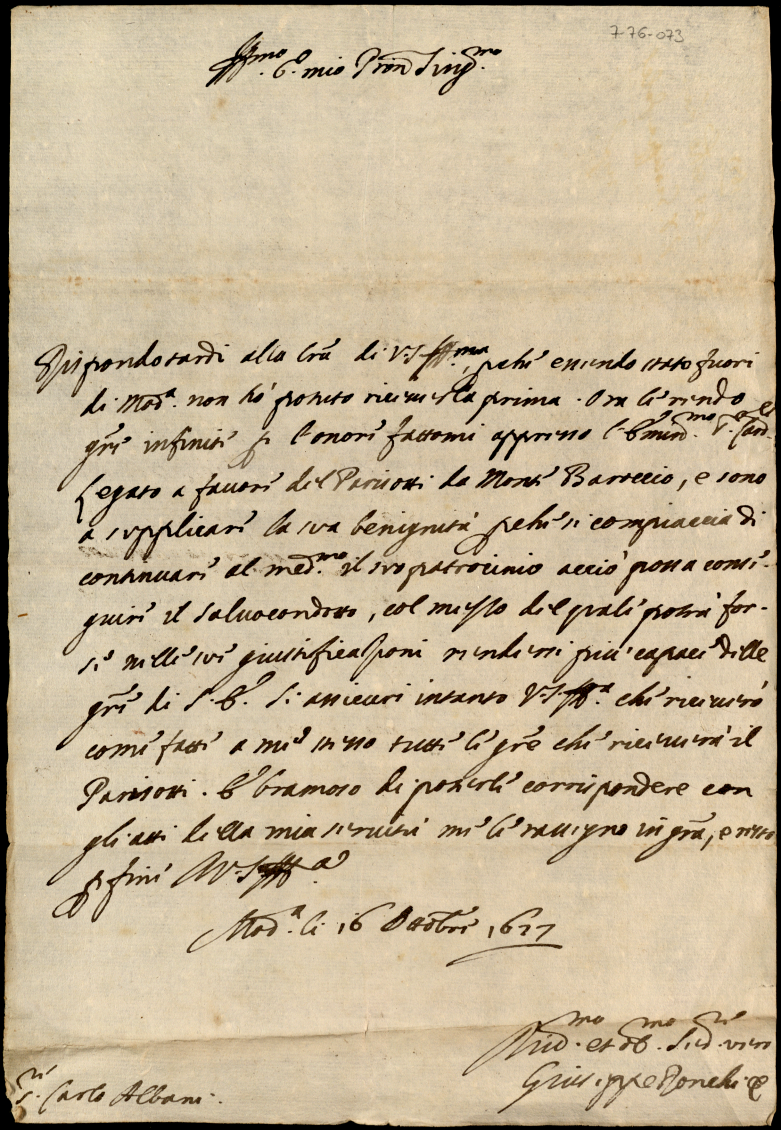 7-76-073
Ill.mo S.r mio Pron Sing.mo
Rispondo tardi alla lrã di V.S. Ill.ma, pchè essendo stato fuori
di Mod.a non hò potuto riceverla prima. Ora le rendo
grẽ infinite p l'onore fattomi appresso l'Emin.mo S.r Card.le
Legato a favore del Parisotti da Monte Baroccio, e sono
a supplicare la sua benignità pchè si compiaccia di
continuare al med.mo il suo patrocinio acciò possa conse-
guire il salvocondotto, col mezzo del quale potrà for-
se nelle sue giustificazioni rendersi più capace delle
grẽ di S. E. Si assicuri intanto V.S. Ill.a che riceverò
come fatte a me stesso tutte le grẽ che riceverà il
Parisotti. E bramoso di poterle corrispondere con
gli atti della mia servitù me le rassegno in grã, e resto
p fine Di V.S. Ill.a
Mod.a li 16 Ottobre 1677
Div.mo et obb.mo Se.d.re vero
Giuseppe Ronchi
S.r Carlo Albani.